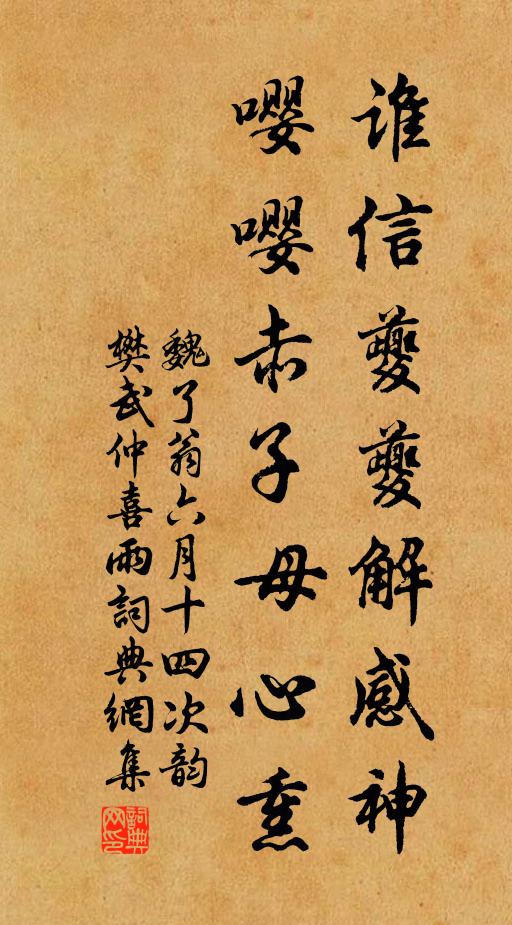 谁信夔夔解感神
嘤嘤赤子母心熏
魏了翁六月十四次韵
樊武仲喜雨詞典網集
詞典网印